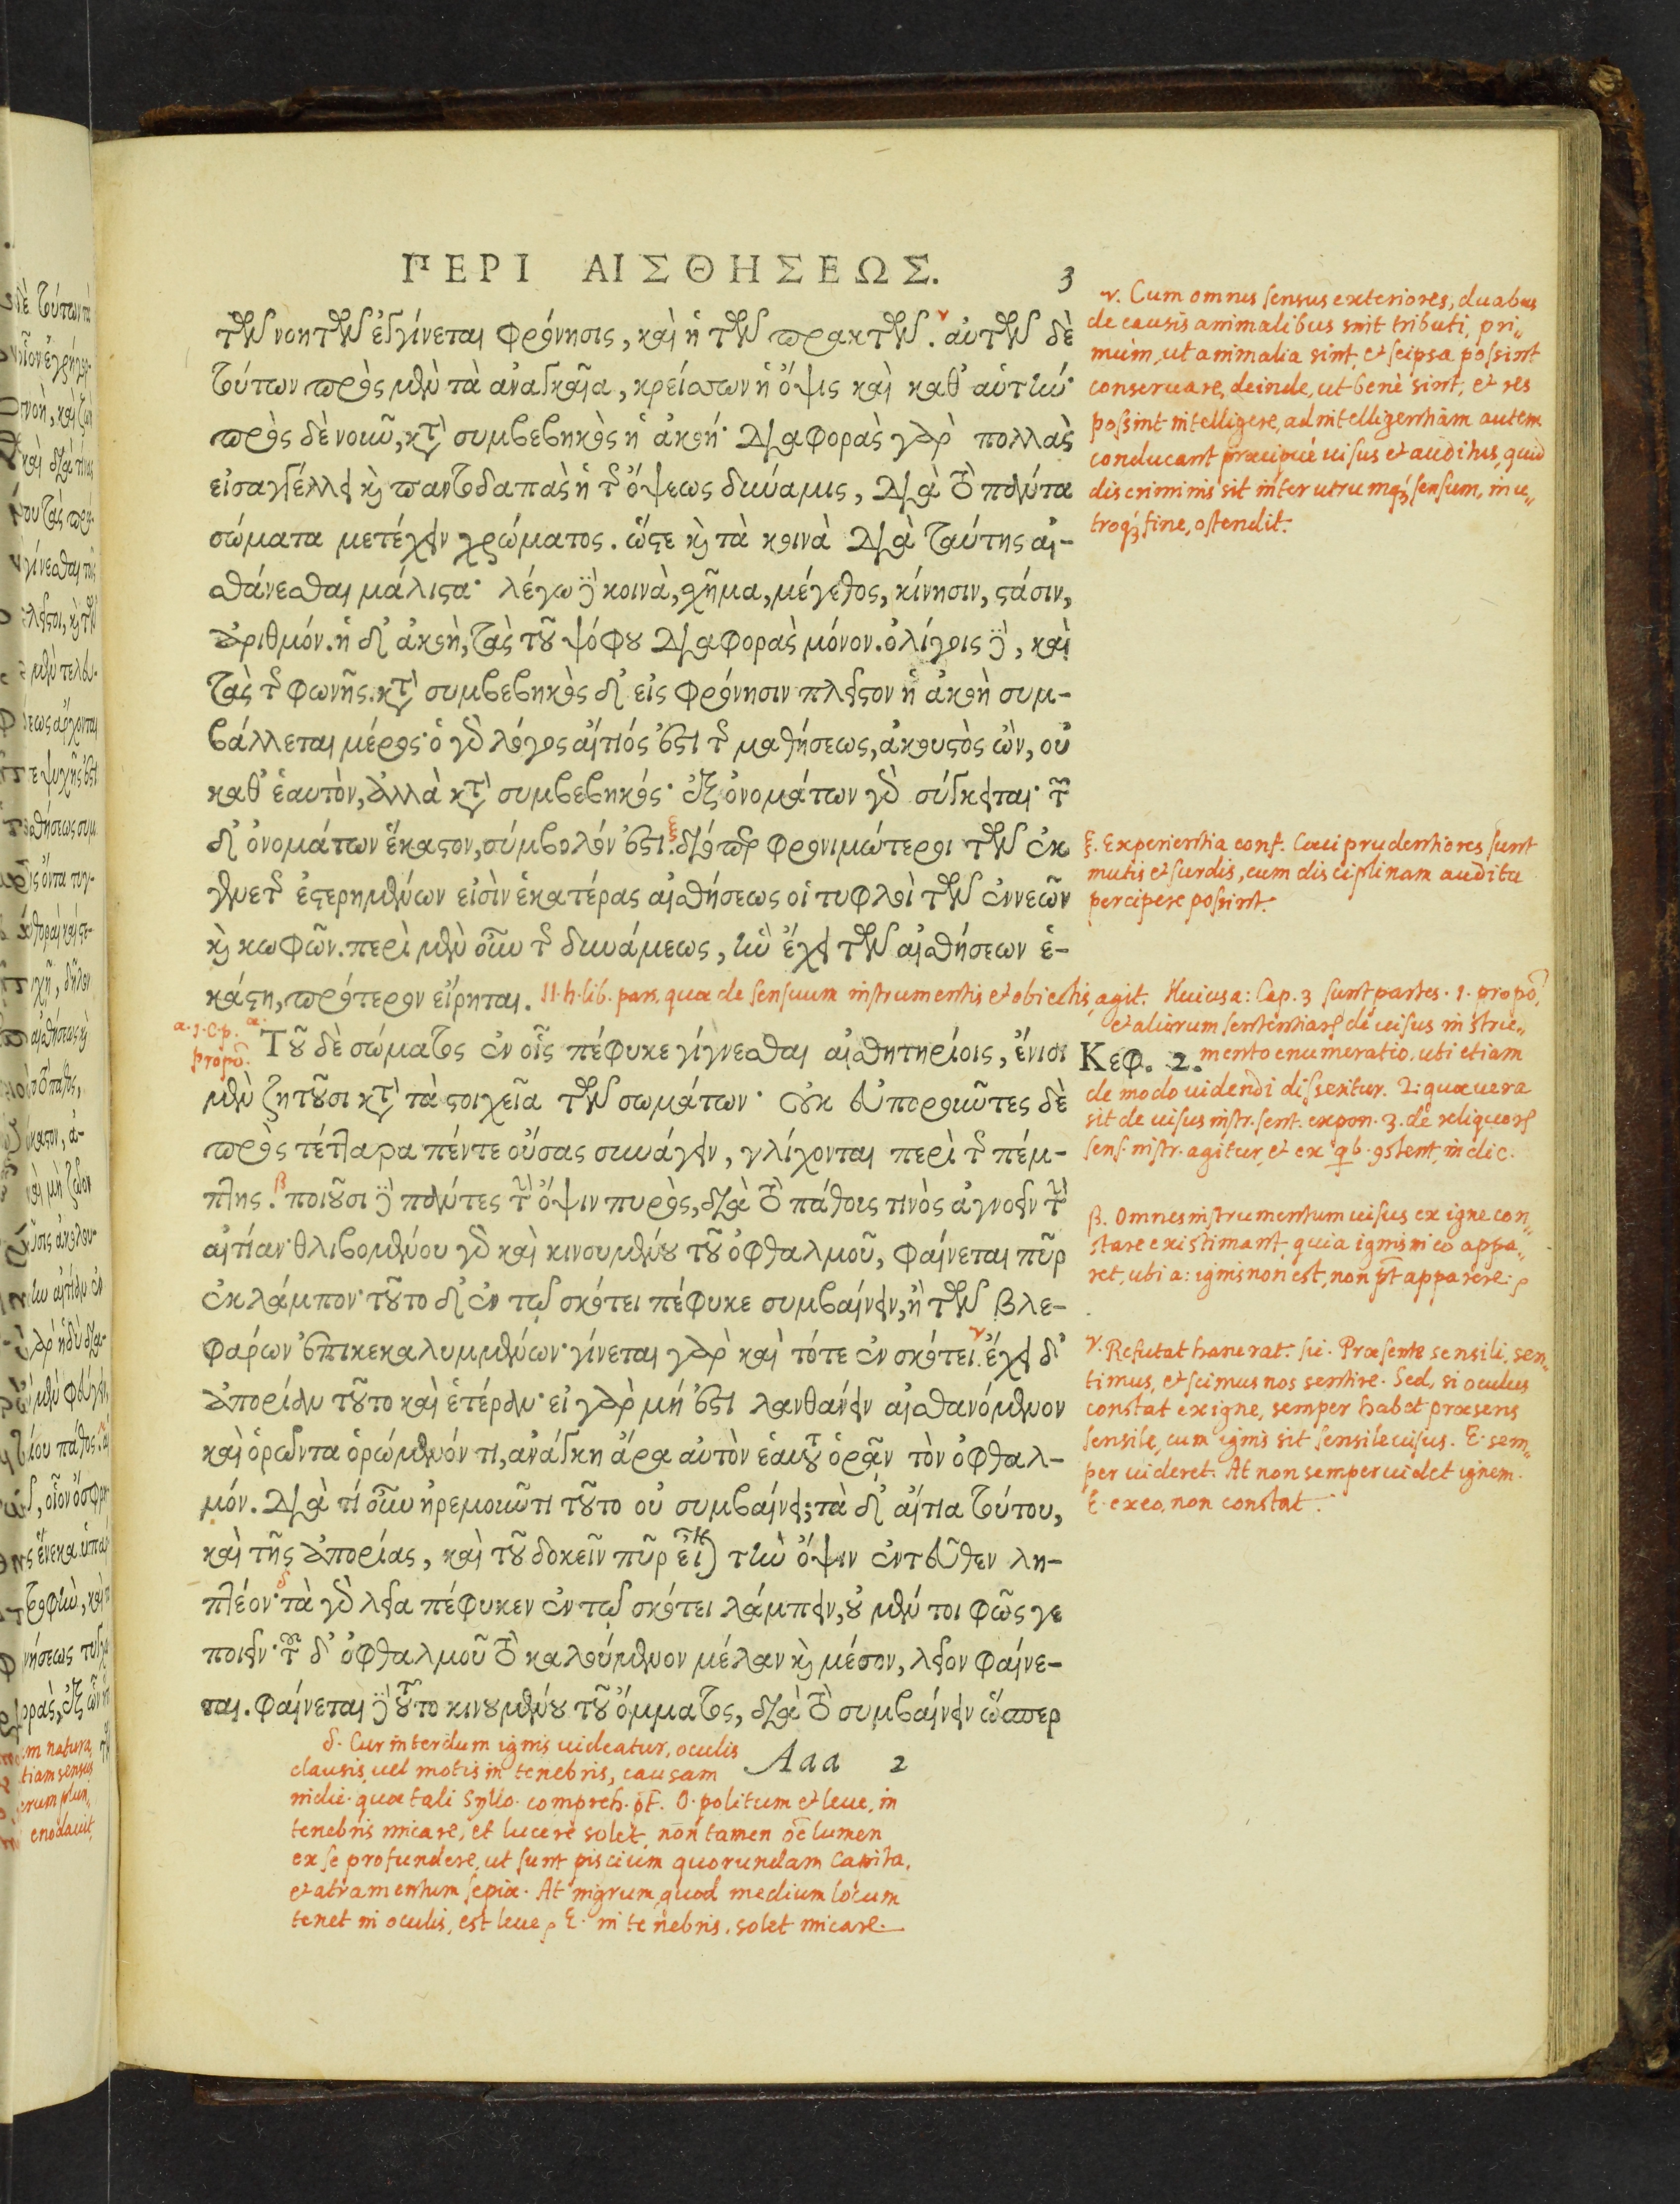 ΠΕΡΙ ΑΙΣΘΗΣΕΩΣ. 3
τῶν νοητῶν ἐγγίνεται φρόνησις, καὶ ἡ τῶν πρακτῶν. αὐτῶν δὲ
τούτων πρὸς μὲν τὰ ἀναγκαῖα, κρείττων ἡ ὄψις καὶ καθ' αὑτήν·
πρὸς δὲ νοῦν, κατὰ συμβεβηκὸς ἡ ἀκοή· διαφορὰς γὰρ πολλὰς
εἰσαγγέλλει καὶ παντοδαπὰς ἡ τῆς ὄψεως δύναμις, διὰ τὸ πάντα
σώματα μετέχειν χρώματος. ὥστε καὶ τὰ κοινὰ διὰ ταύτης αἰ-
σθάνεσθαι μάλιστα· λέγω δὲ κοινὰ, σχῆμα, μέγεθος, κίνησιν, στάσιν,
ἀριθμόν. ἡ δ' ἀκοὴ, τὰς τοῦ ψόφου διαφορὰς μόνον. ὀλίγοις δὲ, καὶ
τὰς τῆς φωνῆς. κατὰ συμβεβηκὸς δ' εἰς φρόνησιν πλεῖστον ἡ ἀκοὴ συμ-
βάλλεται μέρος· ὁ γὰρ λόγος αἴτιός ἐστι τῆς μαθήσεως, ἀκουστὸς ὢν, οὐ
καθ' ἑαυτὸν, ἀλλὰ κατὰ συμβεβηκός· ἐξ ὀνομάτων γὰρ σύγκειται· τῶν
δ' ὀνομάτων ἕκαστον, σύμβολόν ἐστι. διόπερ φρονιμώτεροι τῶν ἐκ
γενετῆς ἐστερημένων εἰσὶν ἑκατέρας αἰσθήσεως οἱ τυφλοὶ τῶν ἐννεῶν
καὶ κωφῶν. περὶ μὲν οὖν τῆς δυνάμεως, ἣν ἔχει τῶν αἰσθήσεων ἑ-
κάστη, πρότερον εἴρηται. II. h. lib. pars, quae de sensuum instrumentis et obiectis, agit. Huius a: Cap. 3 sunt partes. 1. propō.
Τοῦ δὲ σώματος ἐν οἷς πέφυκε γίγνεσθαι αἰσθητηρίοις, ἔνιοι
μὲν ζητοῦσι κατὰ τὰ στοιχεῖα τῶν σωμάτων· οὐκ εὐποροῦντες δὲ
πρὸς τέτταρα πέντε οὔσας συνάγειν, γλίχονται περὶ τῆς πέμ-
πτης. ποιοῦσι δὲ πάντες τὴν ὄψιν πυρὸς, διὰ τὸ πάθους τινὸς ἀγνοεῖν τὴν
αἰτίαν· θλιβομένου γὰρ καὶ κινουμένου τοῦ ὀφθαλμοῦ, φαίνεται πῦρ
ἐκλάμπον· τοῦτο δ' ἐν τῷ σκότει πέφυκε συμβαίνειν, ἢ τῶν βλε-
φάρων ἐπικεκαλυμμένων· γίνεται γὰρ καὶ τότε ἐν σκότει. ἔχει δ'
ἀπορίαν τοῦτο καὶ ἑτέραν· εἰ γὰρ μή ἐστι λανθάνειν αἰσθανόμενον
καὶ ὁρῶντα ὁρώμενόν τι, ἀνάγκη ἄρα αὐτὸν ἑαυτὸν ὁρᾷν τὸν ὀφθαλ-
μόν. διὰ τί οὖν ἠρεμοῦντι τοῦτο οὐ συμβαίνει; τὰ δ' αἴτια τούτου,
καὶ τῆς ἀπορίας, καὶ τοῦ δοκεῖν πῦρ εἶναι τὴν ὄψιν ἐντεῦθεν λη-
πτέον· τὰ γὰρ λεῖα πέφυκεν ἐν τῷ σκότει λάμπειν, οὐ μέν τοι φῶς γε
ποιεῖν· τοῦ δ' ὀφθαλμοῦ τὸ καλούμενον μέλαν καὶ μέσον, λεῖον φαίνε-
ται. φαίνεται δὲ τοῦτο κινουμένου τοῦ ὄμματος, διὰ τὸ συμβαίνειν ὥσπερ
Aaa 2
ν. Cum omnes sensus exteriores, duabus
de causis animalibus sint tributi, pri„
mùm, ut animalia sint, et seipsa possint
conseruare, deinde, ut benè sint, et res
possint intelligere, ad intelligentiam autem
conducant praecipuè uisus et auditus, quid
discriminis sit inter utrumq; sensum, in u„
troq; fine, ostendit.
ξ. Experientia conf. Caeci prudentiores sunt
mutis et surdis, cum disciplinam auditu
percipere possint.
α. 1. c. p.
propō.
et aliorum sententiarum de uisus instru„
Κεφ. 2. mento enumeratio, ubi etiam
de modo uidendi disseritur. 2: quae uera
sit de uisus instr. sent. expon. 3. de reliquorum
sens. instr. agitur, et ex qb. gstent, indic.
β. Omnes instrumentum uisus ex igne con„
stare existimant, quia ignis in eo appa„
ret, ubi a: ignis non est, non pt apparere:
γ. Refutat hanc rat. sic. Praesente sensili, sen„
timus, et scimus nos sentire. Sed, si oculus
constat ex igne, semper habet praesens
sensile, cum ignis sit sensile uisus. E. sem„
per uideret. At non semper uidet ignem.
E. ex eo, non constat.
δ. Cur interdum ignis uideatur, oculis
clausis, uel motis in tenebris, causam
indic. quae tali Syllo. compreh. pt. O. politum et leue, in
tenebris micare, et lucere solet, non tamen oē lumen
ex se profundere, ut sunt piscium quorundam capita,
et atramentum sepiae. At nigrum quod medium locum
tenet in oculis, est leue, E. in tenebris solet micare.